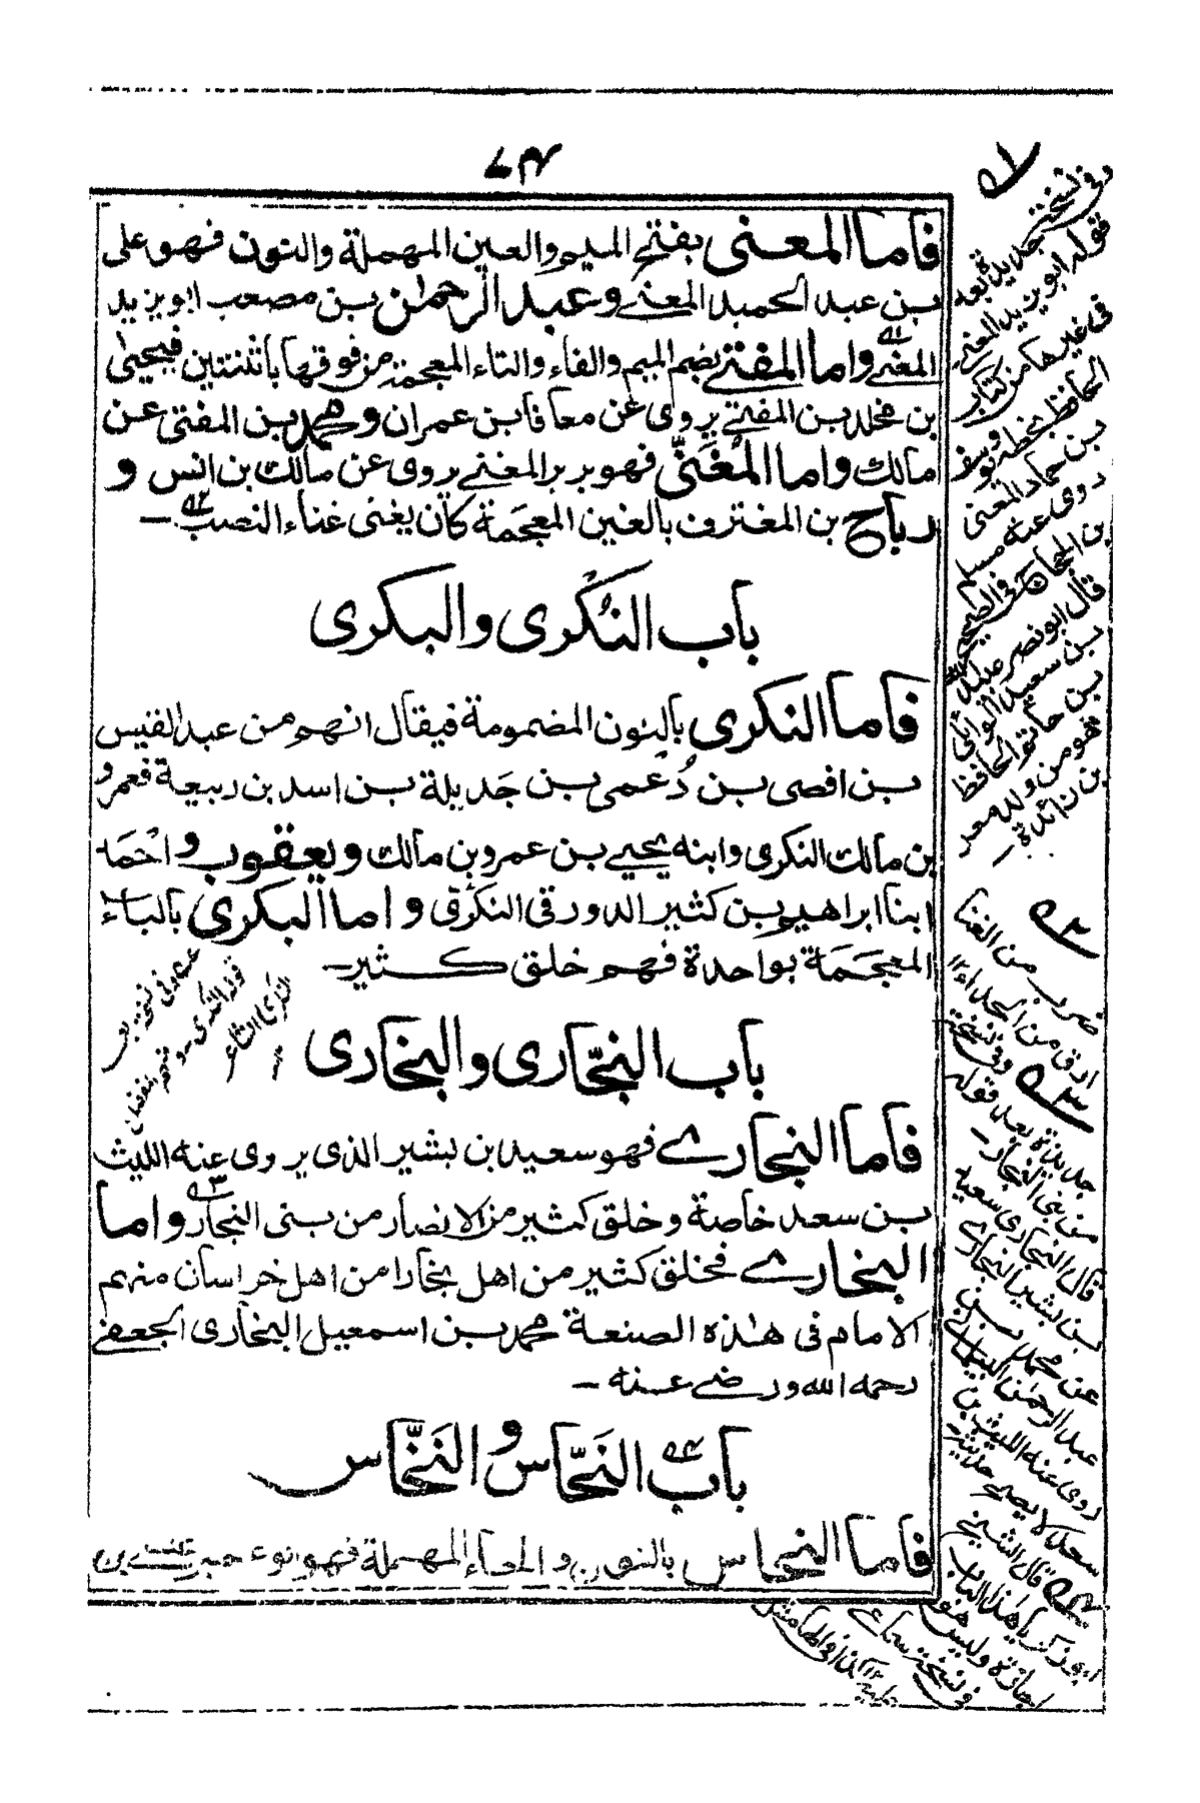 ٧٣
فاما المعنى بفتح الميم والعين المهملة والنون فهو على
بن عبد الحميد المعنے وعبد الرحمٰن بن مصعب ابو يزيد
المعنے واما المفتے بضم الميم والفاء والتاء المعجمة من فوقها باثنتين فيحيىٰ
بن مخلد بن المفتے يروى عن معافا بن عمران ومحمد بن المفتى عن
مالك واما المُغَنّى فهو بربر المغنے يروى عن مالك بن انس و
رباح بن المغترف بالغين المعجمة كان يغنى غناء النصب ـ
باب النُكرى والبكرى
فاما النكرى بالنون المضمومة فيقال انهم من عبد القيس
بن افصى بن دُعمى بن جَديلة بن اسد بن ربيعة فعمرو
بن مالك النكرى وابنه يحيے بن عمرو بن مالك ويعقوب واحْمَد
ابنا ابراهيم بن كثير الدورقى النكرى واما البكرى بالباء
المعجَمَة بواحدة فهم خلق كثير ـ
باب النجّارى والبخارى
فاما النجارے فهو سعيد بن بشير الذى يروى عنه الليث
بن سعد خاصة وخلق كثير من الانصار من بنى النجار واما
البخارے فخلق كثير من اهل بخارا من اهل خراسان منهم
الامام فى هٰذه الصنعة محمد بن اسمعيل البخارى الجعفے
رحمه الله ورضے عنه ـ
باب النَحّاس والنَخّاس
فاما النحاس بالنون والحاء المهملة فهو ابو عمير عيسے بن
وفى نسخة
جديدة بعد
قوله ابو يزيد المعنے
فى غير هٰكا من كتاب
الحافظ بخطه
بن حماد المعنى
روى عنه مسلم
بن الحجاج فى الصحيح
قال ابو نصر عبيد الله
بن سعيد الوائلى
بن حاتم الحافظ
هو من ولد معن
بن زائدة ـ
ضرب من الغنا
ارق من الحداء ١٢
وفى نسخة
جديدة بعد قوله
من بنى النجار ـ
قال النجارى سعيد
بن بشير النجارے
عن محمد بن
عبد الرحمٰن البيلمانے
روى عنه الليث بن
سعد لا يصح حديثه ـ
قال الشيخ
ابو زكريا هٰذا الباب
اجازة وليس هو
فى نسخة سماعے